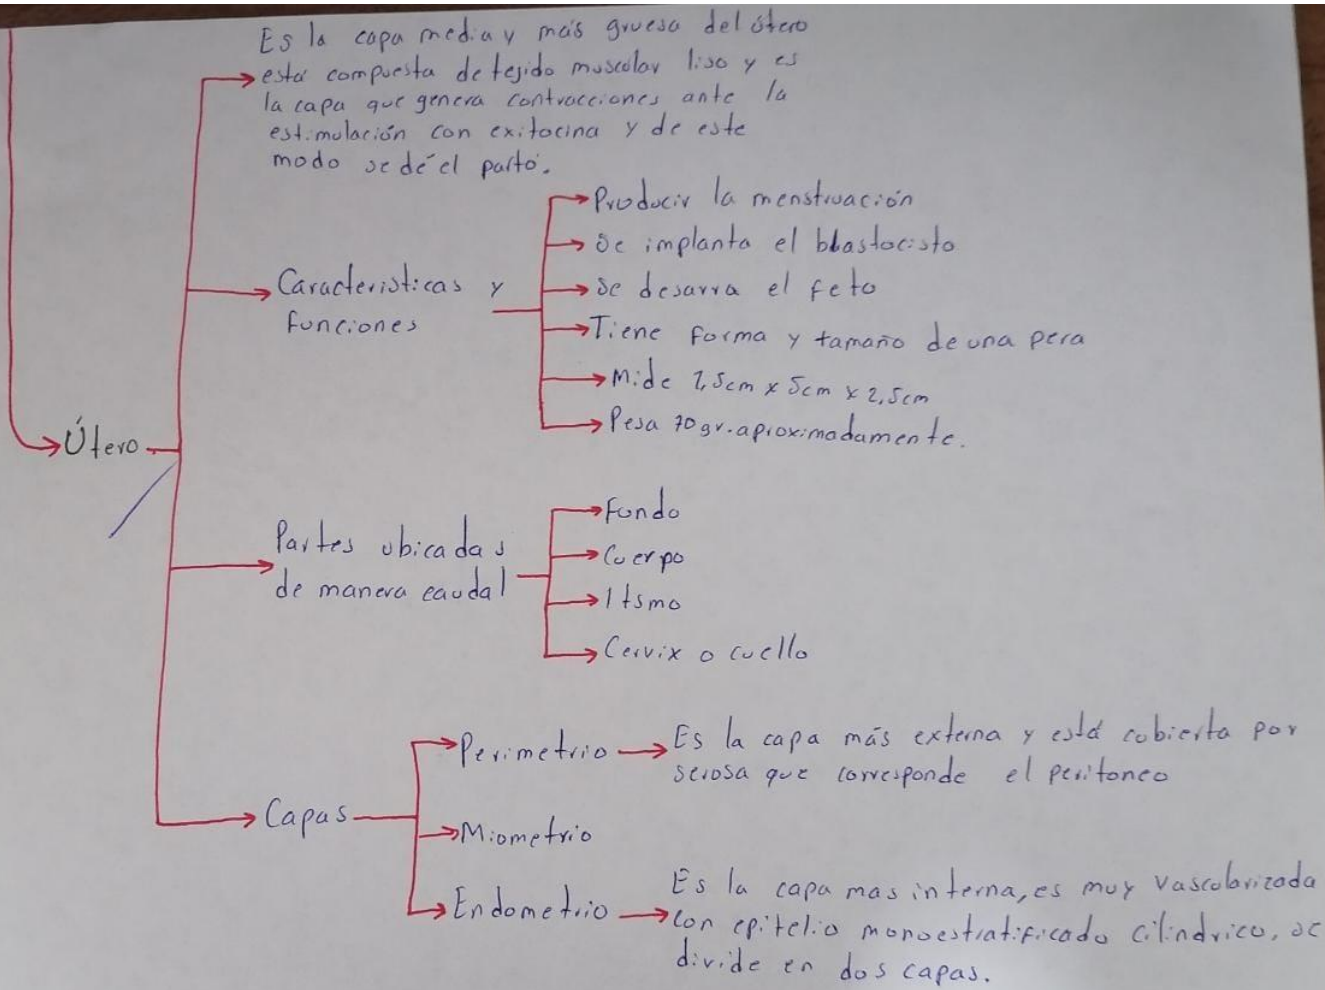 Es la capa media y más gruesa del útero
está compuesta de tejido muscolar liso y es
la capa que genera contracciones ante la
estimulación con exitocina y de este
modo se dé el parto.
Producir la menstruación
Se implanta el blastocisto
Características y
funciones
Se desarra el feto
Tiene forma y tamaño de una pera
Mide 7,5cm x 5cm x 2,5cm
Pesa 70gr. aproximadamente.
Útero
Partes ubicadas
de manera caudal
Fondo
Cuerpo
Itsmo
Cervix o cuello
Capas
Perimetrio
Es la capa más externa y está cubierta por
serosa que corresponde el peritoneo
Miometrio
Endometrio
Es la capa mas interna, es muy vascularizada
con epitelio monoestratificado cilíndrico, se
divide en dos capas.